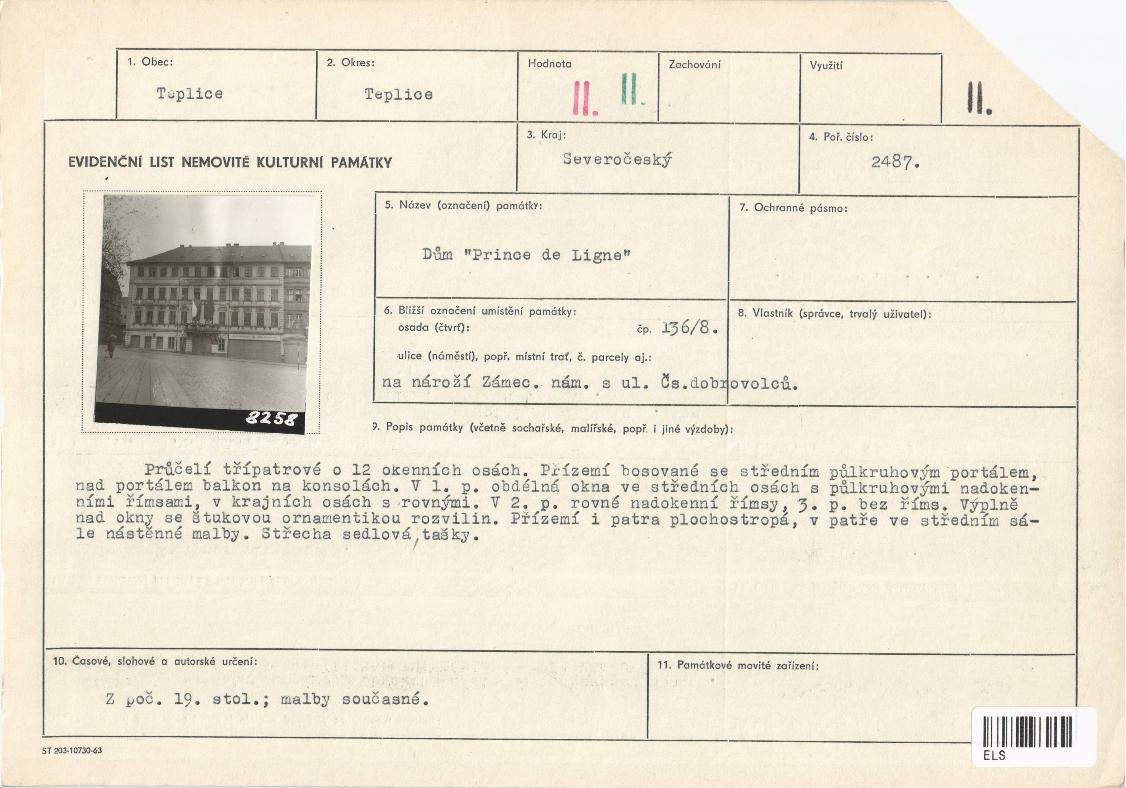 1. Obec:
Teplice
2. Okres:
Teplice
Hodnota
II. II.
Zachování
Využití
II.
EVIDENČNÍ LIST NEMOVITÉ KULTURNÍ PAMÁTKY
3. Kraj:
Severočeský
4. Poř. číslo:
2487.
8258
5. Název (označení) památky:
Dům "Prince de Ligne"
7. Ochranné pásmo:
6. Bližší označení umístění památky:
osada (čtvrť):
čp. 136/8.
ulice (náměstí), popř. místní trať, č. parcely aj.:
na nároží Zámec. nám. s ul. Čs.dobrovolců.
8. Vlastník (správce, trvalý uživatel):
9. Popis památky (včetně sochařské, malířské, popř. i jiné výzdoby):
Průčelí třípatrové o 12 okenních osách. Přízemí bosované se středním půlkruhovým portálem,
nad portálem balkon na konsolách. V 1. p. obdélná okna ve středních osách s půlkruhovými nadoken-
ními římsami, v krajních osách s rovnými. V 2. p. rovné nadokenní římsy, 3. p. bez říms. Výplně
nad okny se štukovou ornamentikou rozvilin. Přízemí i patra plochostropá, v patře ve středním sá-
le nástěnné malby. Střecha sedlová, tašky.
10. Časové, slohové a autorské určení:
Z poč. 19. stol.; malby současné.
11. Památkové movité zařízení:
ST 203-10730-63
ELS